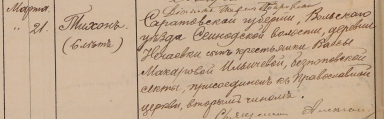 Марта
" 21.
Тихонъ
(6 лѣтъ)
Саратовской губерніи, Вольскаго
уѣзда Сенновской волости, деревни
сынъ крестьянки Вассы
Макаровой Ильичевой, безпоповской
секты, присоединенъ къ Православной
церкви, вторымъ чиномъ.